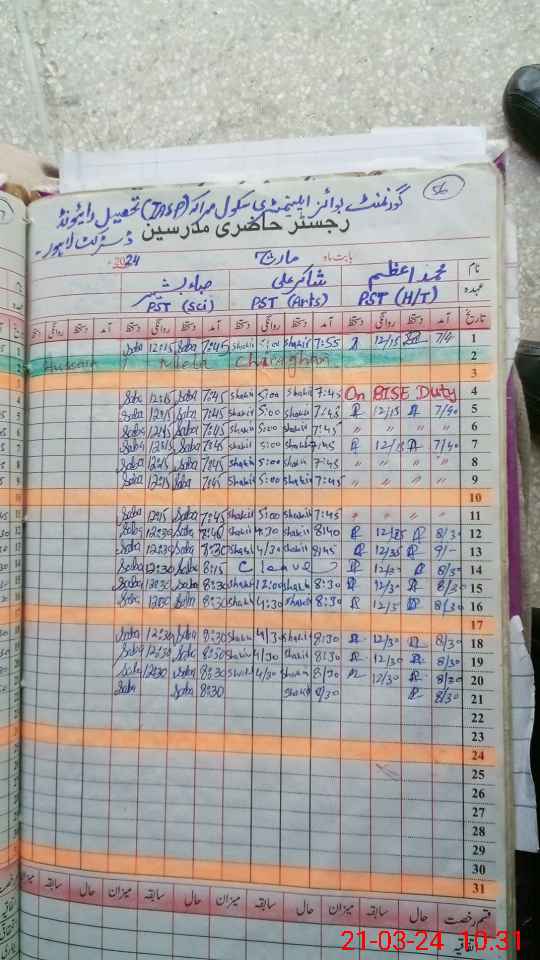 56
گورنمنٹ بوائز ایلیمنٹری سکول مراکہ (IASP) تحصیل رائیونڈ
رجسٹر حاضری مدرسین ڈسٹرکٹ لاہور۔
بابت ماہ مارچ 2024
نام محمد اعظم شاکر علی صباء بشیر
عہدہ PST (H/T) PST (Arts) PST (Sci)
تاریخ آمد دستخط روانگی دستخط آمد دستخط روانگی دستخط آمد دستخط روانگی دستخط
1 12/15 7:55 Shakir 5:00 Shakir 7:45 Saba 12:15 Saba
2 Hussain Mela Charaghan
3
4 On BISE Duty 7:45 Shakir 5:00 Shakir 7:45 Saba 12:15 Saba
5 7/40 12/15 7:45 Shakir 5:00 Shakir 7:45 Saba 12:15 Saba
6 " " " " 7:45 Shakir 5:00 Shakir 7:45 Saba 12:15 Saba
7 7/40 12/15 7:45 Shakir 5:00 Shakir 7:45 Saba 12:15 Saba
8 " " " " 7:45 Shakir 5:00 Shakir 7:45 Saba 12:15 Saba
9 " " " " 7:45 Shakir 5:00 Shakir 7:45 Saba 12:15 Saba
10
11 " " " " 7:45 Shakir 5:00 Shakir 7:45 Saba 12:15 Saba
12 8/30 8:40 Shakir 4:30 Shakir Saba 12:30 Saba
13 9/- 8:45 Shakir 4/30 Shakir 8:30 Saba 12:30 Saba
14 8/30 C leave 8:15 Saba 12:30 Saba
15 8/30 12/30 8:30 Shakir 12:00 Shakir 8:30 Saba 12:30 Saba
16 8/30 8:30 Shakir 4:30 Shakir 8:30 Saba Saba
17
18 8/30 12/30 8:30 Shakir 4/30 Shakir 8:30 Saba 12:30 Saba
19 8/30 12/30 8:30 Shakir 4/30 Shakir 8:30 Saba 12:30 Saba
20 8/20 12/30 8/30 Shakir 4/30 8:30 Saba 12:30 Saba
21 8/30 8/30 Shakir 8:30 Saba Saba
22
23
24
25
26
27
28
29
30
31
قسم رخصت حال سابقہ میزان حال سابقہ میزان حال سابقہ میزان
اتفاقیہ
21-03-24 10:31